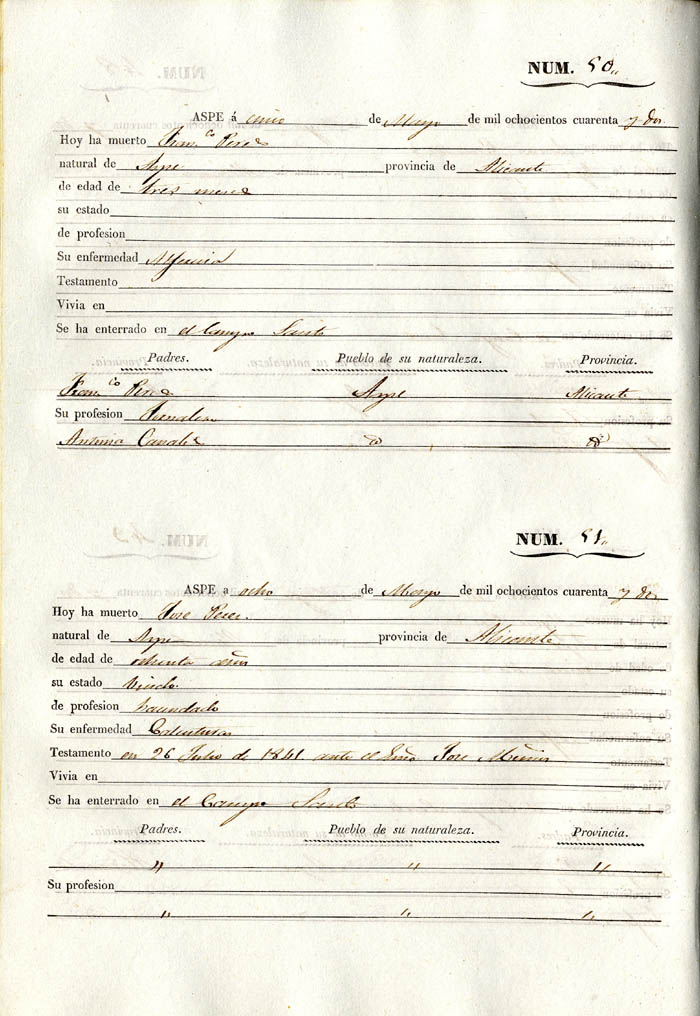 NUM. 50
ASPE á cinco de Mayo de mil ochocientos cuarenta y dos
Hoy ha muerto Fran.co Peres
natural de Aspe provincia de Alicante
de edad de tres meses
su estado
de profesion
Su enfermedad Alferecia
Testamento
Vivia en
Se ha enterrado en el Campo Santo
Padres. Pueblo de su naturaleza. Provincia.
Fran.co Peres Aspe Alicante
Su profesion Jornalero
Antonia Canales d d
NUM. 51
ASPE a ocho de Mayo de mil ochocientos cuarenta y dos
Hoy ha muerto Jose Peres
natural de Aspe provincia de Alicante
de edad de ochenta años
su estado Viudo
de profesion hacendado
Su enfermedad Calenturas
Testamento en 26 Julio de 1841 ante el Esño Jose
Vivia en
Se ha enterrado en el Campo Santo
Padres. Pueblo de su naturaleza. Provincia.
" " "
Su profesion
" " "